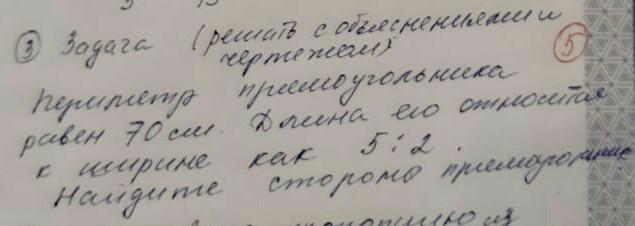 ③ Задача (решать с объяснениями и
чертежом)
⑤
Периметр прямоугольника
равен 70 см. Длина его относится
к ширине как 5:2.
Найдите стороны прямоугольника